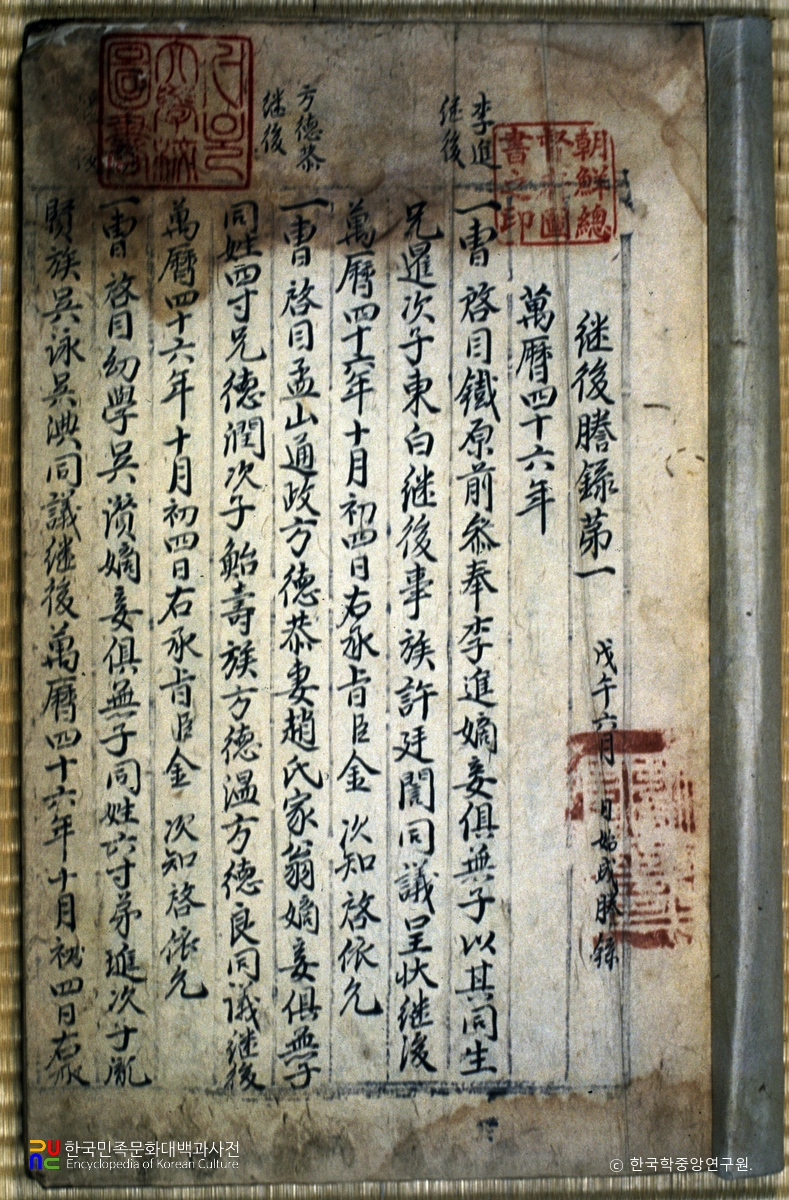 継後謄錄苐一 戊午六月 日始成謄錄
萬曆四十六年
李進
継後
一曺 啓目鐵原前叅奉李進嫡妾俱無子以其同生
兄暹次子東白継後事族許廷誾同議呈狀継後
萬曆四十六年十月初四日右承旨臣金 次知啓依允
方德恭
継後
一曺 啓目孟山通政方德恭妻趙氏家翁嫡妾俱無子
同姓四寸兄德潤次子鮐壽族方德溫方德良同議継後
萬曆四十六年十月初四日右承旨臣金 次知啓依允
一曺 啓目幼學吳瓚嫡妾俱無子同姓六寸弟璡次子胤
賢族吳泳吳淟同議継後萬曆四十六年十月初四日右承
朝鮮總
督府圖
書之印
大學校
圖書
한국민족문화대백과사전
Encyclopedia of Korean Culture
© 한국학중앙연구원.